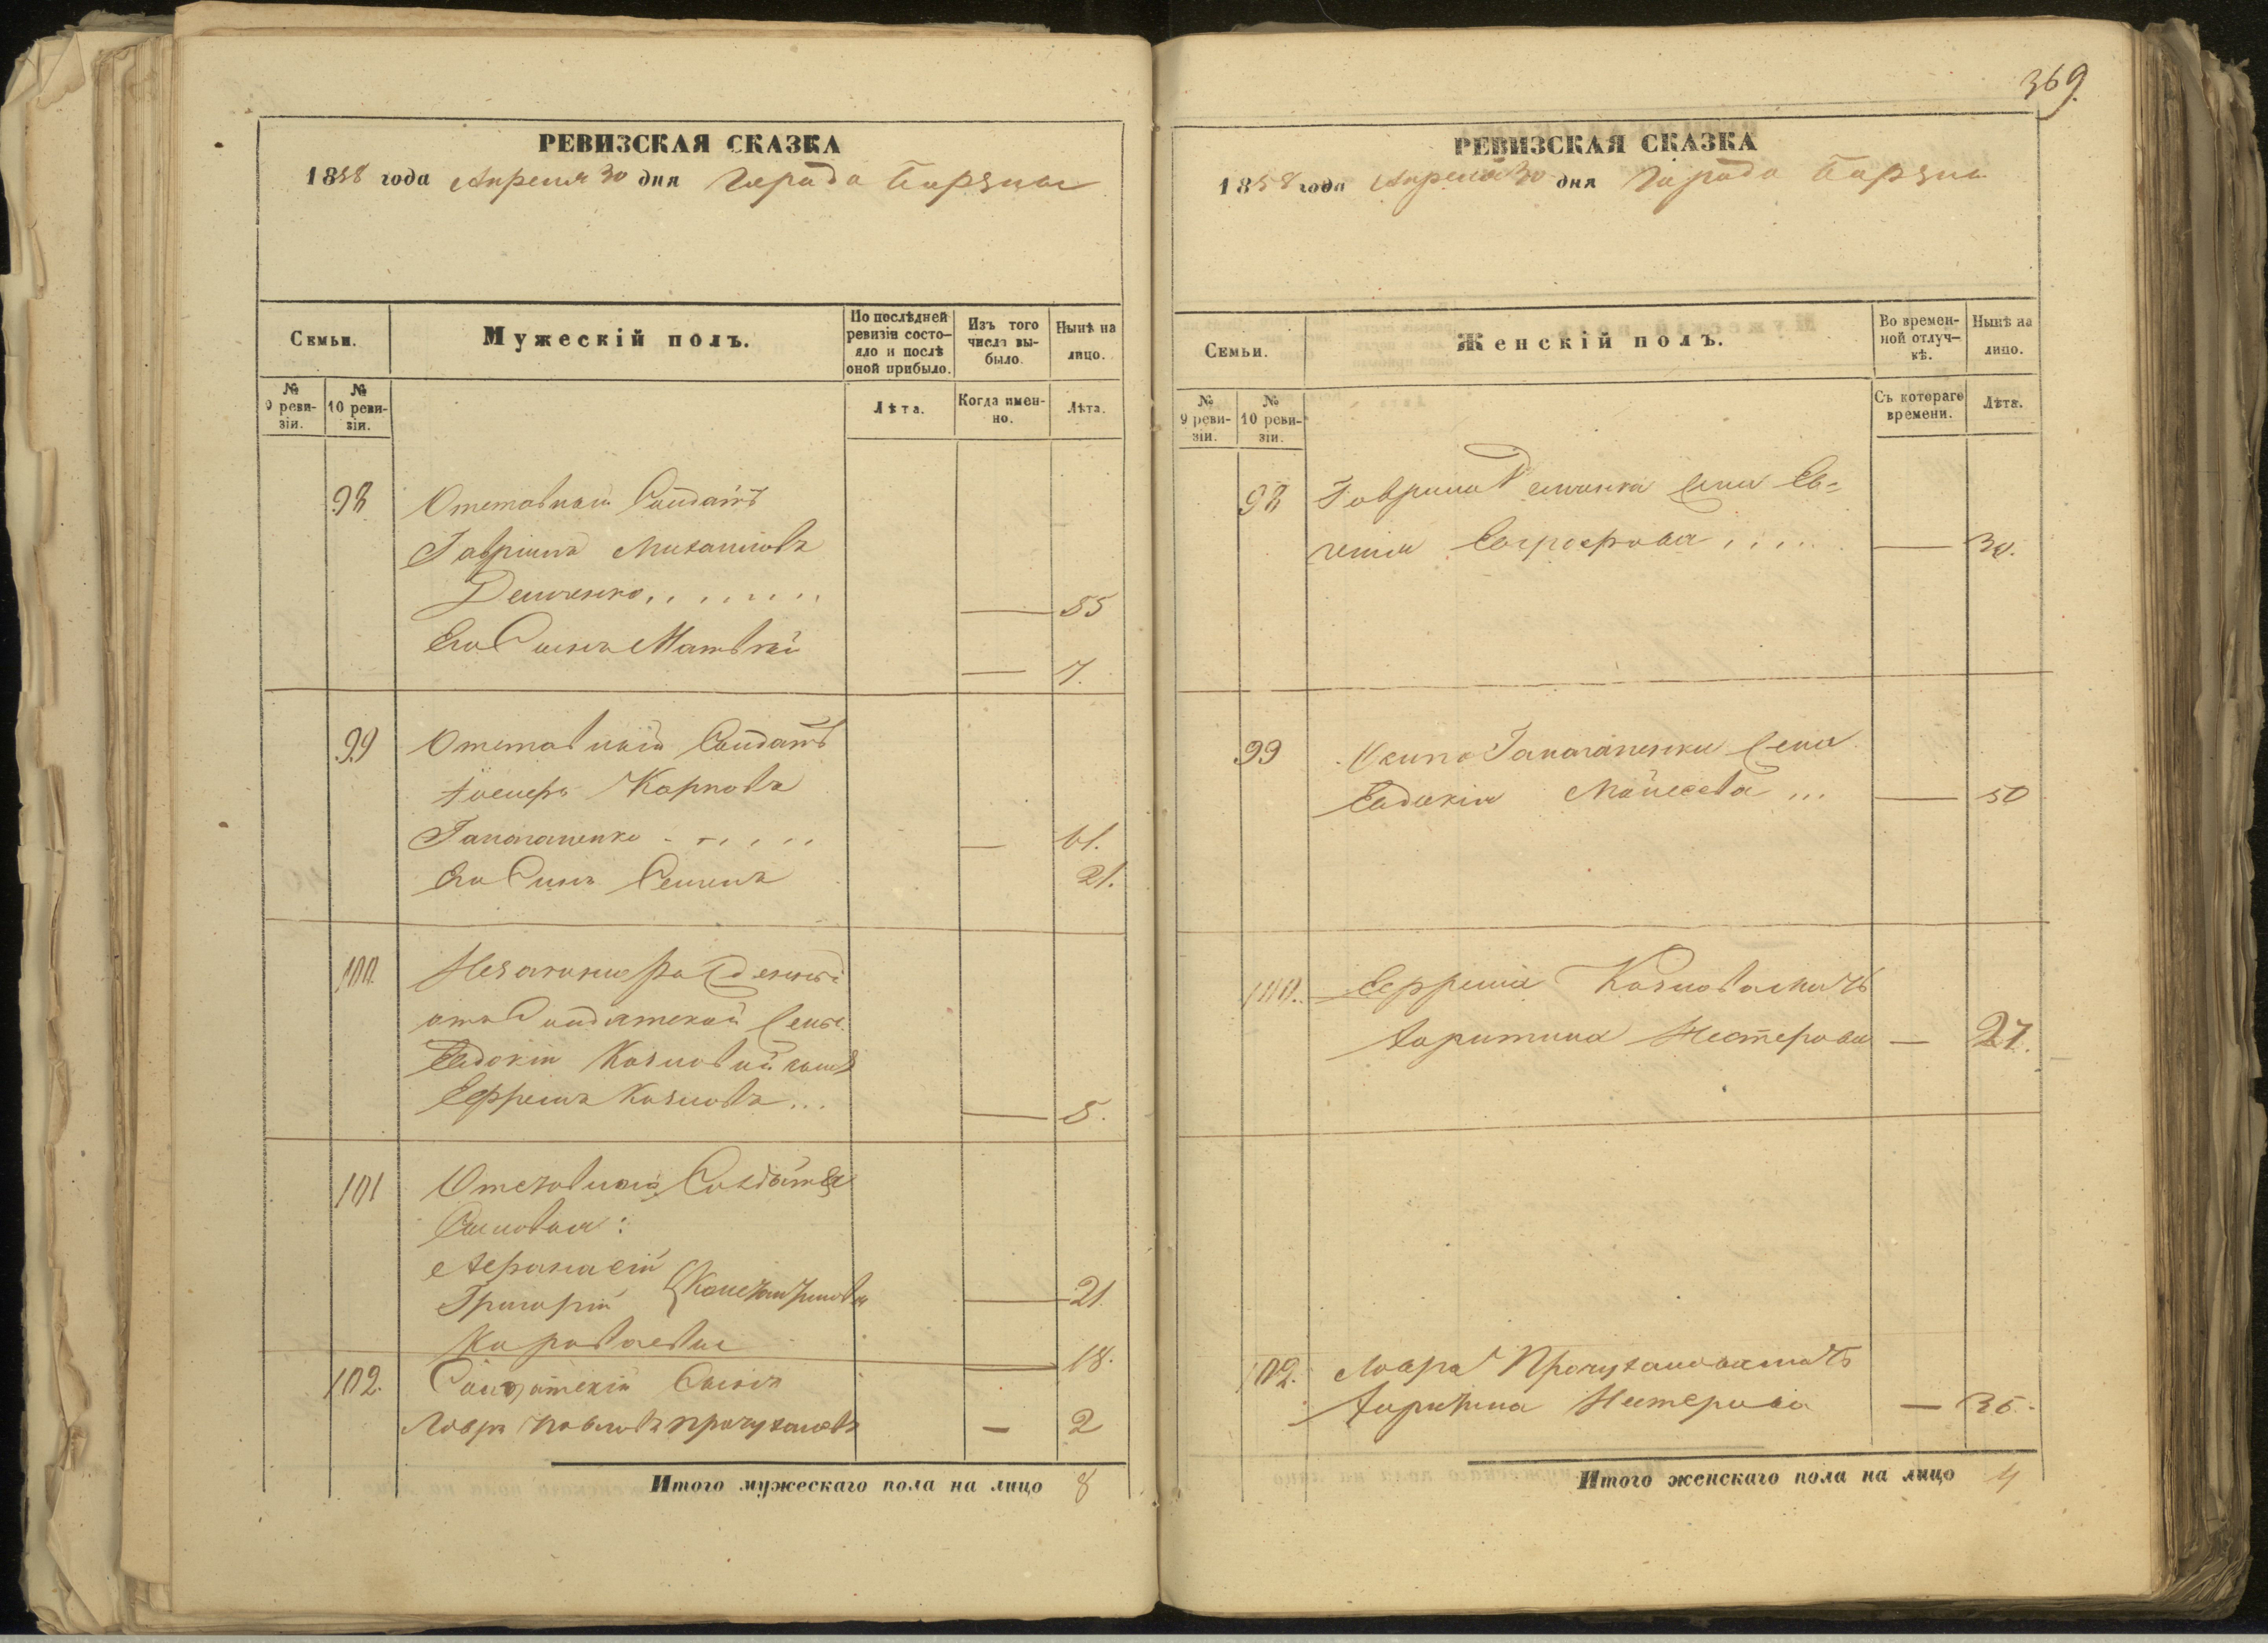 369.
РЕВИЗСКАЯ СКАЗКА
1858 года Апреля 30 дня Города Борзны
Семьи.
Мужескій полъ.
По послѣдней ревизіи состояло и послѣ оной прибыло.
Изъ того числа выбыло.
Нынѣ на лицо.
№ 9 ревизіи.
№ 10 ревизіи.
Лѣта.
Когда именно.
Лѣта.
98 Отставный Солдатъ
Гавріилъ Михайловъ
Демченко . . . . . . . — 55
Его Сынъ Матвѣй — 7.
99 Отставный Солдатъ
Карповъ
Гапоненко . . . . . — 61.
Его Сынъ Семенъ 21.
100. Незаконнорожденный
отъ Солдатской жены
Евдокіи
Ефремъ ... — 5.
101 Отставнаго Солдата
Сыновья:
Афанасій
Григорій Константиновы — 21.
Короваевы — 18.
102. Солдатскій Сынъ
Лавръ Павловъ — 2
Итого мужескаго пола на лицо 8
РЕВИЗСКАЯ СКАЗКА
1858 года Апреля 30 дня Города Борзны
Семьи.
Женскій полъ.
Во временной отлучкѣ.
Нынѣ на лицо.
№ 9 ревизіи.
№ 10 ревизіи.
Съ котораго времени.
Лѣта.
98 Гаврила Демченка жена Ев=
генія . . . . — 30.
99 Гапоненки жена
Евдокія Моисеева ... — 50
100. Ефрема мать
Нестерова — 27.
102. Лавра мать
Нестерова — 35.
Итого женскаго пола на лицо 4